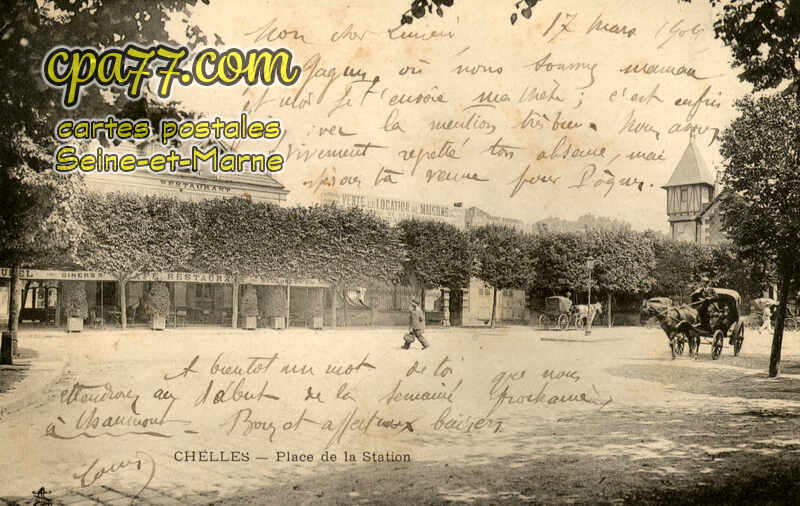 Mon cher Lucien 17 Mars 190
où nous sommes maman
et moi je t'envoie ma ; c'est enfin
avec la mention très bien. Nous avons
vivement regretté ton absence, mais
ta venue pour Pâques.
cpa77.com
cartes postales
Seine-et-Marne
RESTAURANT
VENTE ET LOCATION DE MAISONS
DINERS RESTAURANT
A bientôt un mot de toi que nous
attendrons au début de la semaine prochaine
à Chaumont - Bons et affectueux baisers
Louis
CHELLES — Place de la Station